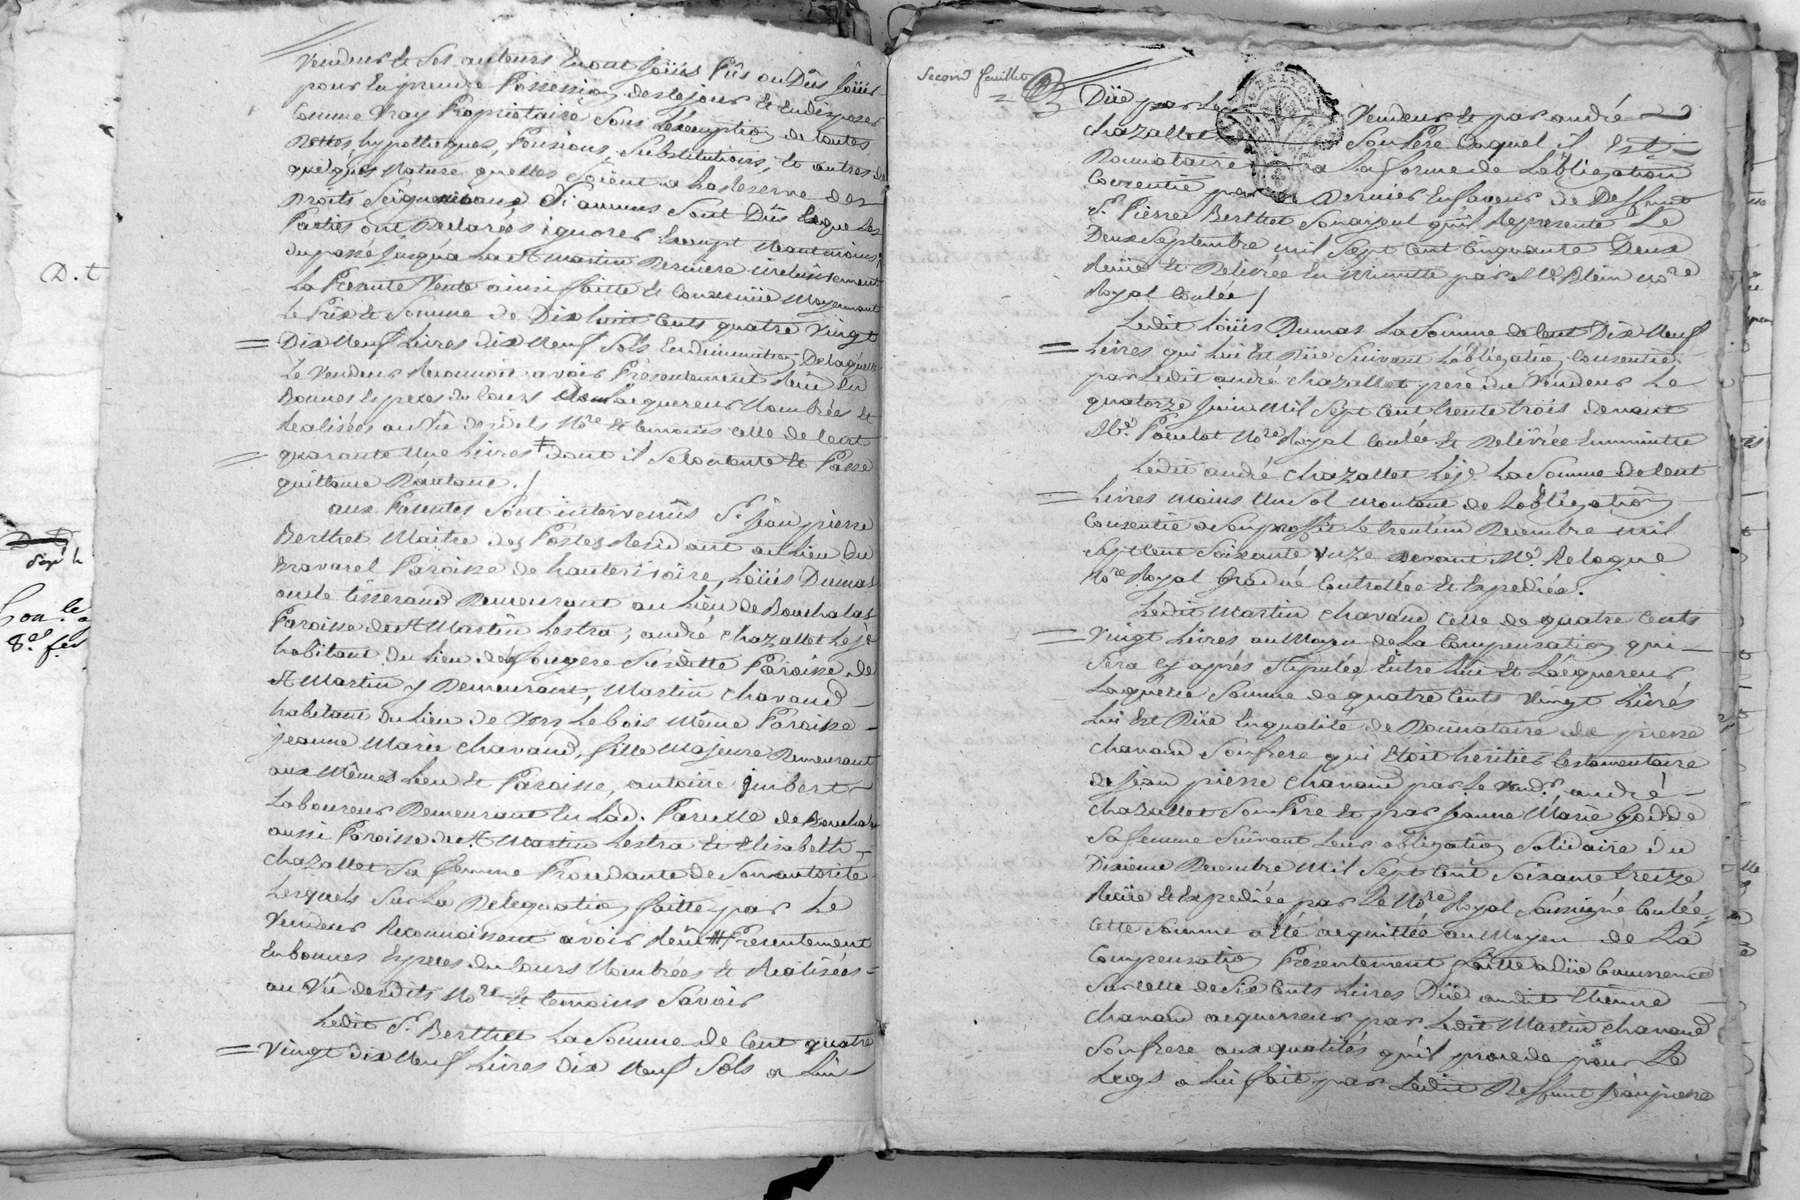 vendeur & ses auteurs en ont joüis pûs ou dûs joüir
pour en prendre possession dès ce jour & en disposer
comme vray propriétaire sous l'exemption de toutes
dettes, hypotheques, pensions, substitutions, & autres de
quelques nature quelles soient a la reserve des
droits seigneuriaux si aucuns sont dûs ce que les
parties ont declarées ignorer exempt neantmoins
du passé jusqu'a la st Martin derniere inclusivement
la presente vente ainsi faitte & convenüe moyennant
le prix & somme de dix huit cents quatre vingt
dix neuf livres dix neuf sols en diminution de laquelle
le vendeur reconnoit avoir presentement reçu en
bonnes especes du cours de l'acquereur nombrées et
realisées au vû desdits No.re & temoins celle de cent
quarante une livres # dont il se contente & passe
quittance d'autant ./
aux presentes sont intervenûs S.r jean pierre
Berthet Maitre des Postes residant au lieu du
Bravarel Paroisse de hauterivoire, Loüis Dumas
tisserand demeurant au lieu de Bouchalas
Paroisse de st Martin Lestra, andré chazallet Le j.e
habitant du lieu de fougere susditte Paroisse de
st Martin y demeurant, Martin chavand
habitant du lieu de vers le bois même Paroisse
jeanne Marie chavand, fille majeure demeurant
aux mêmes lieu & Paroisse, antoine jmbert
laboureur demeurant en lad. Parcelle de Bouchalas
aussi Paroisse de st Martin Lestra & Elisabeth
chazallet sa femme procedante de son autorité
lesquels sur la delegation faitte par le
vendeur reconnoissent avoir reçû presentement
en bonnes especes du cours nombrées & realisées
au vû desdits No.re & temoins savoir
Ledit S.r Berthet la somme de cent quatre
vingt dix neuf livres dix neuf sols a lui
D. t
Second feuillet
düe par le vendeur & par andré
chazallet son pere duquel il est
donnataire a la forme de l'obligation
consentie par ce dernier en faveur de deffunt
S.r Pierre Berthet son ayeul qu'il represente le
deux septembre mil sept cent cinquante deux
reçüe & delivrée en minutte par M.e Blein No.re
Royal Coulée /
Ledit Loüis Dumas la somme de cent dix neuf
livres qui lui est düe suivant l'obligation consentie
par ledit andré chazallet pere du vendeur le
quatorze juin mil sept cent trente trois devant
M.e Poulat No.re Royal Coulée & delivrée en minutte
Ledit andré chazallet le j.e la somme de cent
livres moins un sol montant de l'obligation
consentie a son proffit le trentiem decembre mil
sept cent soixante unze devant M.e Relogue
No.re Royal gradué controllée & expediée.
Ledit Martin chavand celle de quatre cents
vingt livres au moyen de la compensation qui
sera cy après stipulée entre lui & l'acquereur,
laquelle somme de quatre cents vingt livres
lui est düe en qualité de donnataire de pierre
chavand son frere qui etoit héritier testamentaire
de jean pierre chavand par le vend.r, andré
chazallet son pere & par jeanne Marie
sa femme suivant leur obligation solidaire du
dixieme decembre mil sept cent soixante treize
reçüe & expediée par le No.re Royal soussigné Coulée,
cette somme a été acquittée au moyen de la
compensation presentement faitte
sur celle de six cents livres düe audit Etienne
chavand acquereur par ledit Martin chavand
son frere aux qualités qu'il procede pour le
legs a lui fait par ledit deffunt jean pierre